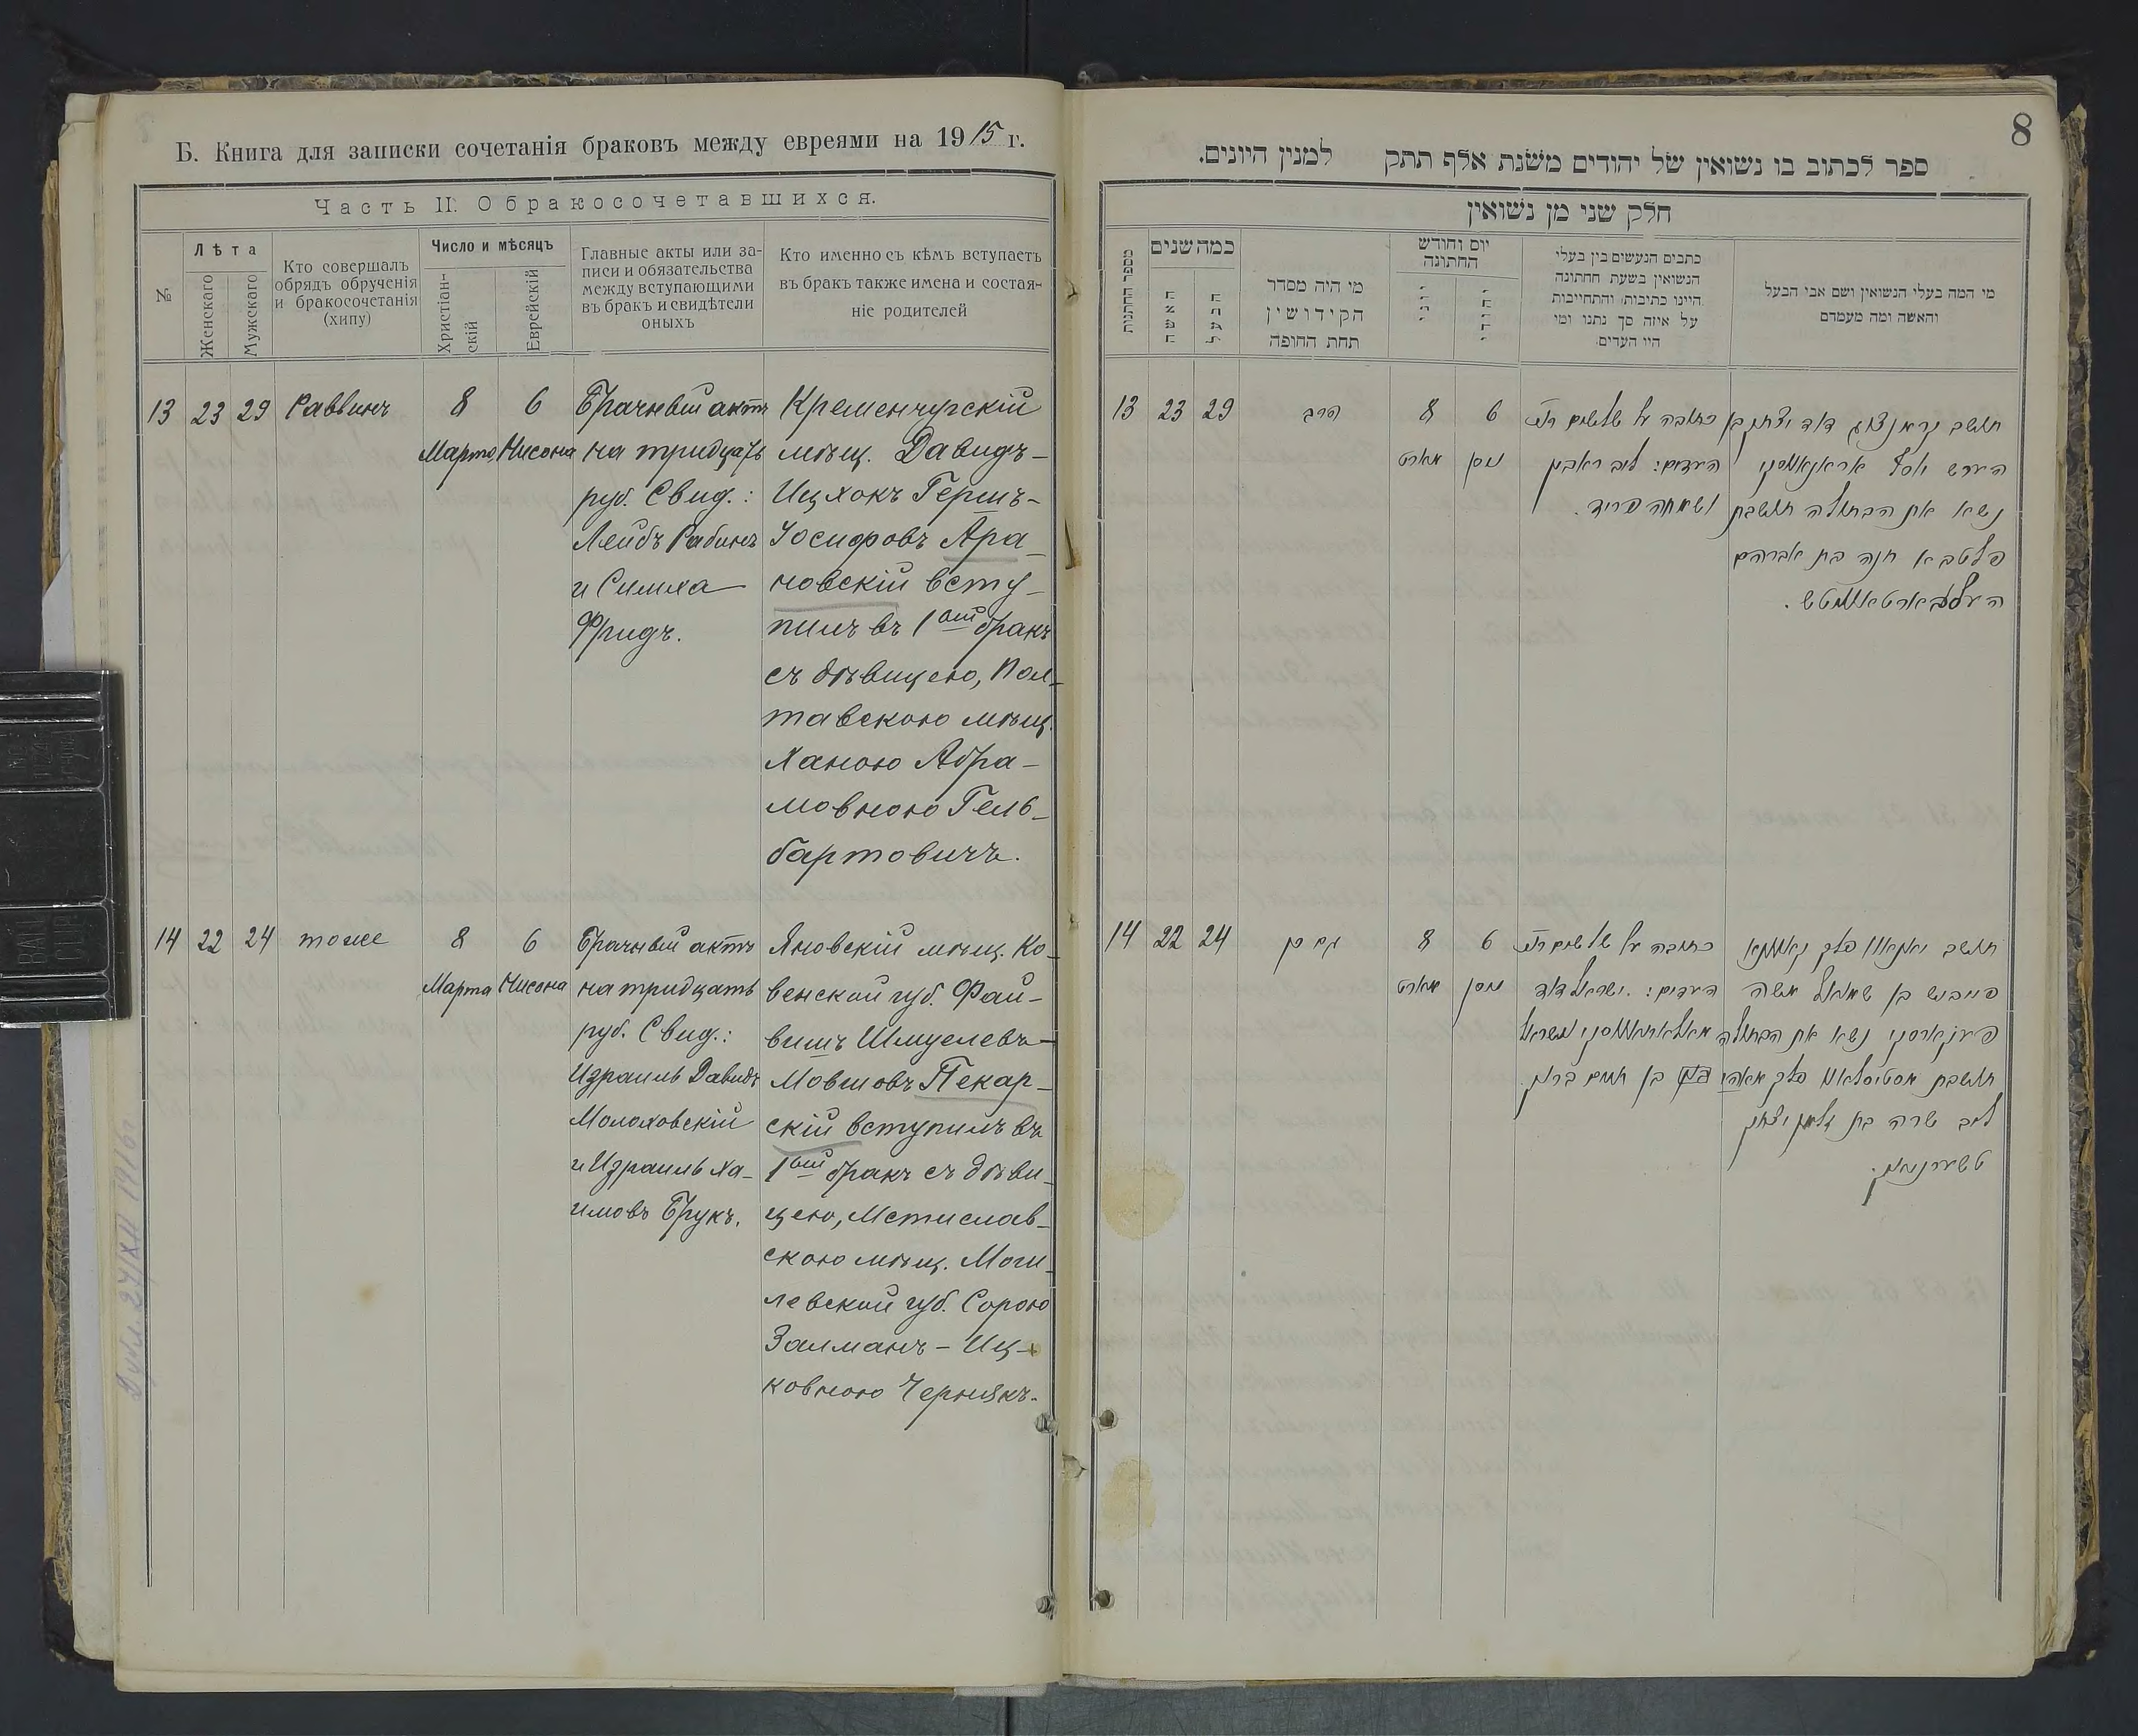 Б. Книга для записки сочетанія браковъ между евреями на 1915 г.
Часть II. О бракосочетавшихся.
№
Лѣта
Женскаго
Мужескаго
Кто совершалъ
обрядъ обрученія
и бракосочетанія
(хипу)
Число и мѣсяцъ
Христіан-
скій
Еврейскій
Главные акты или за-
писи и обязательства
между вступающими
въ бракъ и свидѣтели
оныхъ
Кто именно съ кѣмъ вступаетъ
въ бракъ также имена и состоя-
ніе родителей
13 23 29 Раввинъ
8
Марта
6
Нисона
Брачный актъ
на тридцать
руб. Свид.:
Лейбъ Рабинъ
и Симха
Фридъ.
Кременчугскій
мѣщ. Давидъ-
Ицхокъ Гершъ-
Іосифовъ Ара-
новскій всту-
пилъ въ 1ый бракъ
съ дѣвицею, Пол-
тавскою мѣщ.
Ханою Абра-
мовною Гель-
бартовичъ.
14 22 24 тоже
8
Марта
6
Нисона
Брачный актъ
на тридцать
руб. Свид.:
Израиль Давидъ
Молоховскій
и Израиль Ха-
имовъ Брукъ.
Яновскій мѣщ. Ко-
венской губ. Фай-
вишъ Шмуелевъ-
Мовшовъ Пекар-
скій вступилъ въ
1ый бракъ съ дѣви-
цею, Мстислав-
скою мѣщ. Моги-
левской губ. Сорою
Залманъ-Иц-
ковною Чернякъ.
8
ספר לכתוב בו נשואין של יהודים משנת אלף תתק למנין היונים.
חלק שני מן נשואין
מספר החתנות
כמה שנים
האשה
הבעל
מי היה מסדר
הקידושין
תחת החופה
יום וחודש
החתונה
יוני
יהודי
כתבים הנעשים בין בעלי
הנשואין בשעת החתונה
היינו כתיבות והתחייבות
על איזה סך נתנו ומי
היו העדים
מי המה בעלי הנשואין ושם אבי הבעל
והאשה ומה מעמדם
13 23 29 הרב
8
מארט
6
ניסן
כתובה על שלשים
העדים: ליב ראבין
ושמחה פריד.
תושב קרמנצוג דוד יצחק בן
הירש יוסף אראנאווסקי
נשא את הבתולה תושבת
פלטבא חנה בת אברהם
העלבארטאוויטש.
14 22 24 גם כן
8
מארט
6
ניסן
כתובה על שלשים
העדים: ישראל דוד
מאלאחאווסקי וישראל
בן חיים ברוק.
תושב יאנאוו פלך קאוונא
פייבוש בן שמואל משה
פיקארסקי נשא את הבתולה
תושבת מסטיסלאוו פלך
ליב שרה בת זלמן יצחק
טשערניאק.